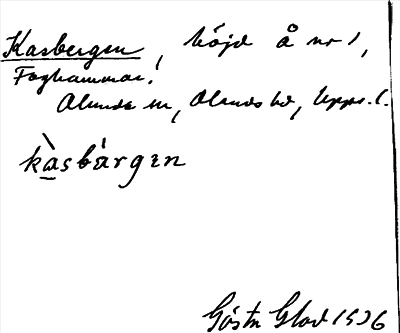 Kasbergen, höjd å nr 1,
Foghammar.
Alunda sn, Olands hd, Upps. l.
kàsbárgen
Gösta Glad 1936